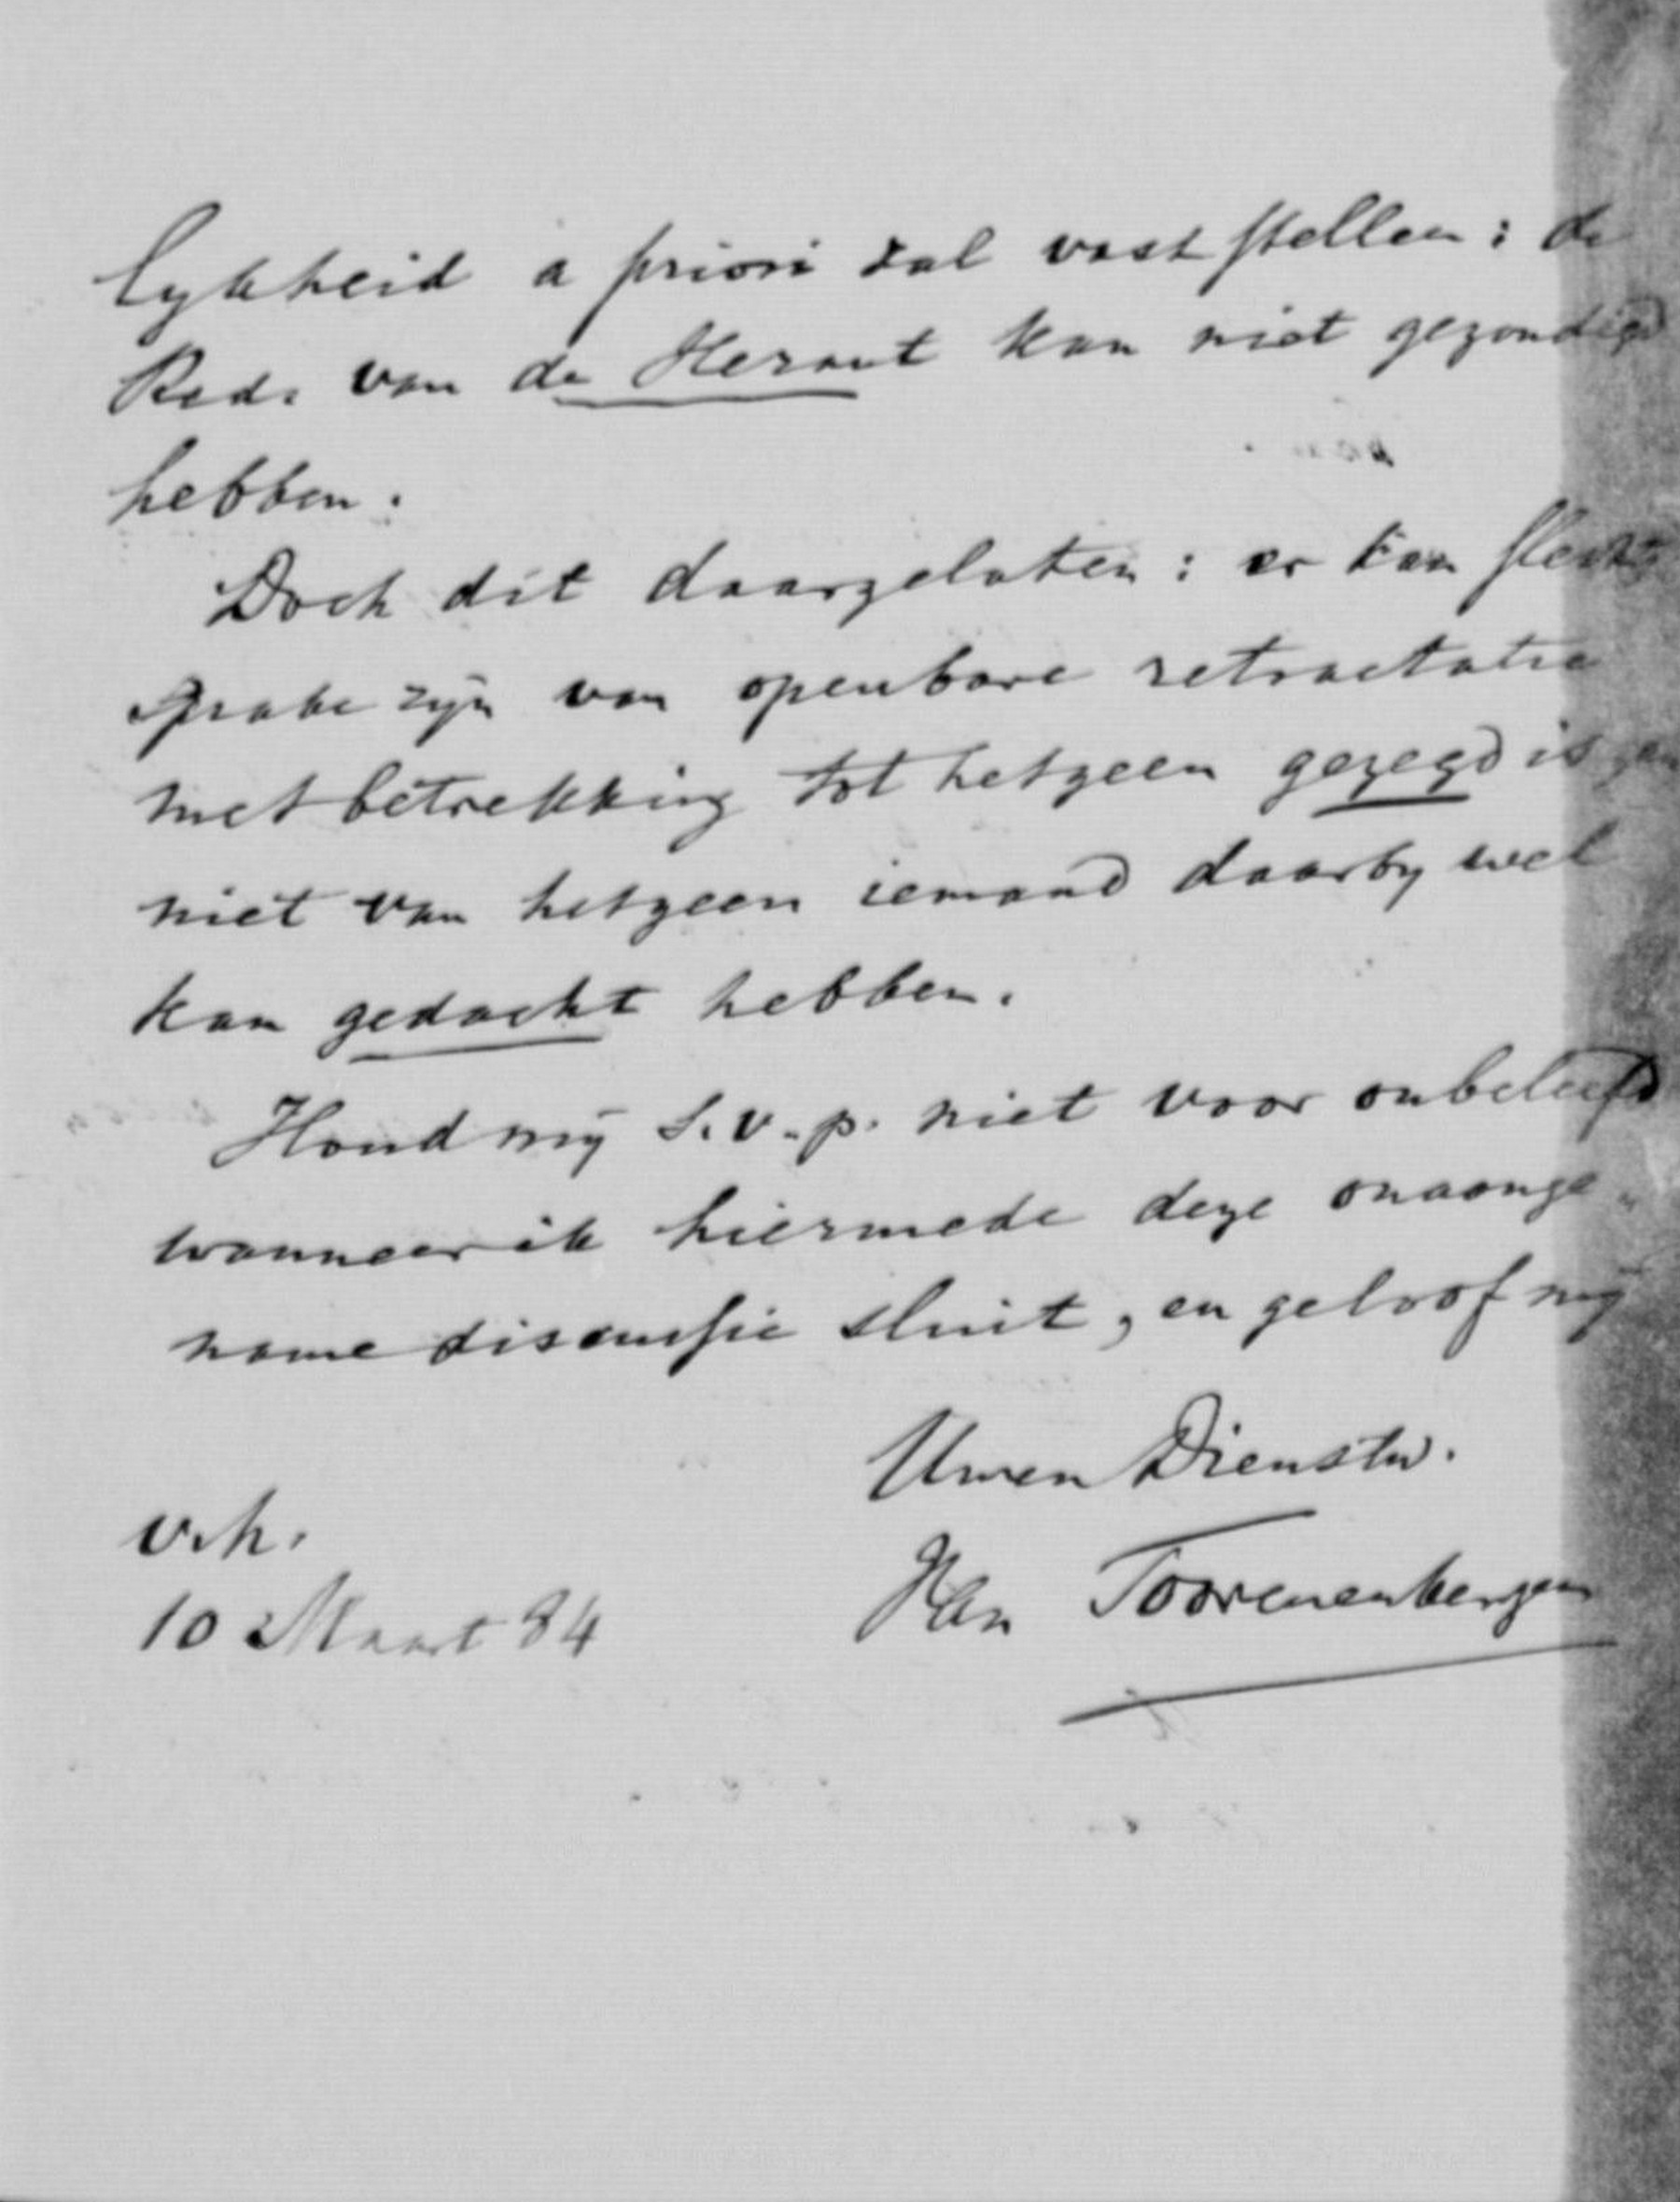 lykheid a priori zal vast stellen : de
Red. van de Heraut kan niet gezondigd
hebben.
Doch dit daargelaten : er kan slechts
sprake zijn van openbare retractatie
met betrekking tot hetgeen gezegd is
niet van hetgeen iemand daarby wel
kan gedacht hebben.
Houd mij S.v.p. niet voor onbeleefd
wanneer ik hiermede deze onaange-
name discussie sluit, en geloof mij
Uwen Dienstw.
v.h.
Van Toorenenbergen
10 Maart 84